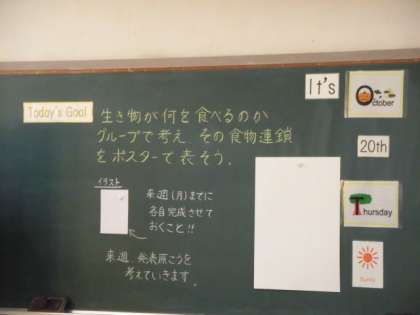 Today's Goal
生き物が何を食べるのか
グループで考え、その食物連鎖
をポスターで表そう.
イラスト
来週(月)までに
各自完成させて
おくこと!!
来週、発表原こうを
考えていきます.
It's
October
20th
Thursday
Sunny